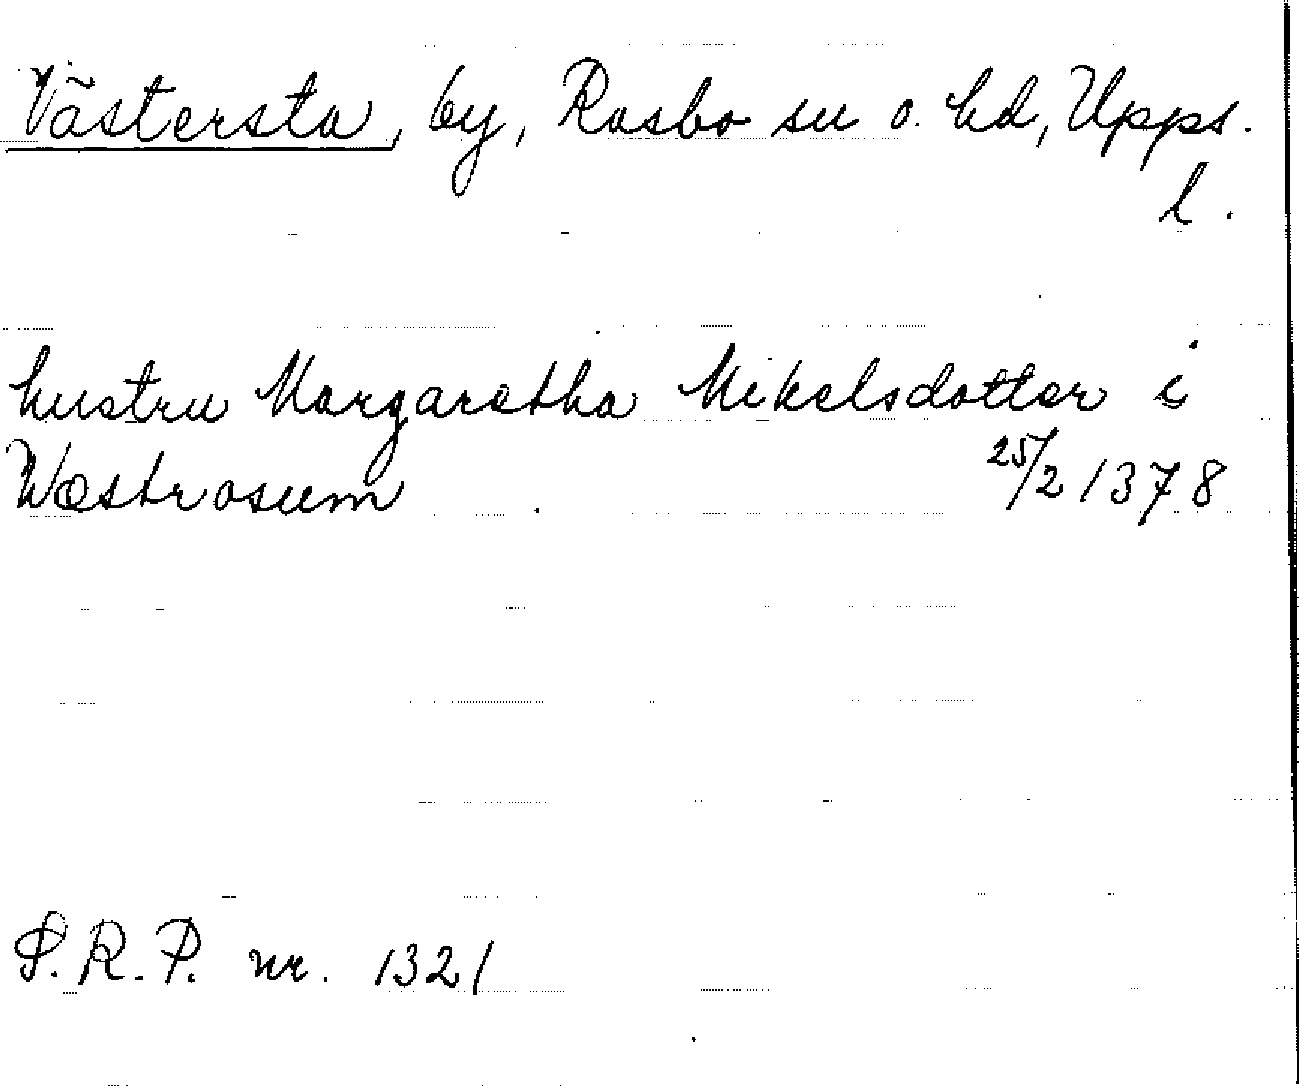 Västersta, by, Rasbo sn o. hd, Upps.
l.
hustru Margaretha Mikelsdotter i
Wæstrosum 25/2 1378
S.R.P. nr. 1321